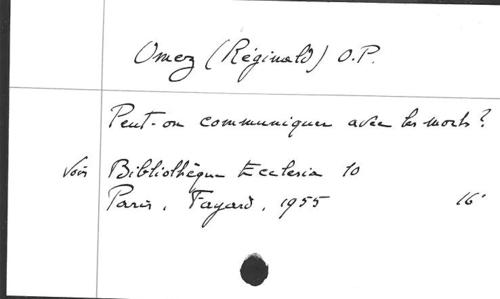 Omez (Réginald) O.P.
Peut-on communiquer avec les morts?
Voir Bibliothèque Ecclesia 10
Paris, Fayard, 1955 16°